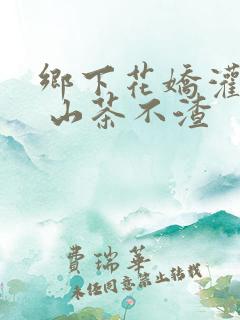 鄉下花嬌灌
山茶不渣
費瑞華
未經同意禁止轉載